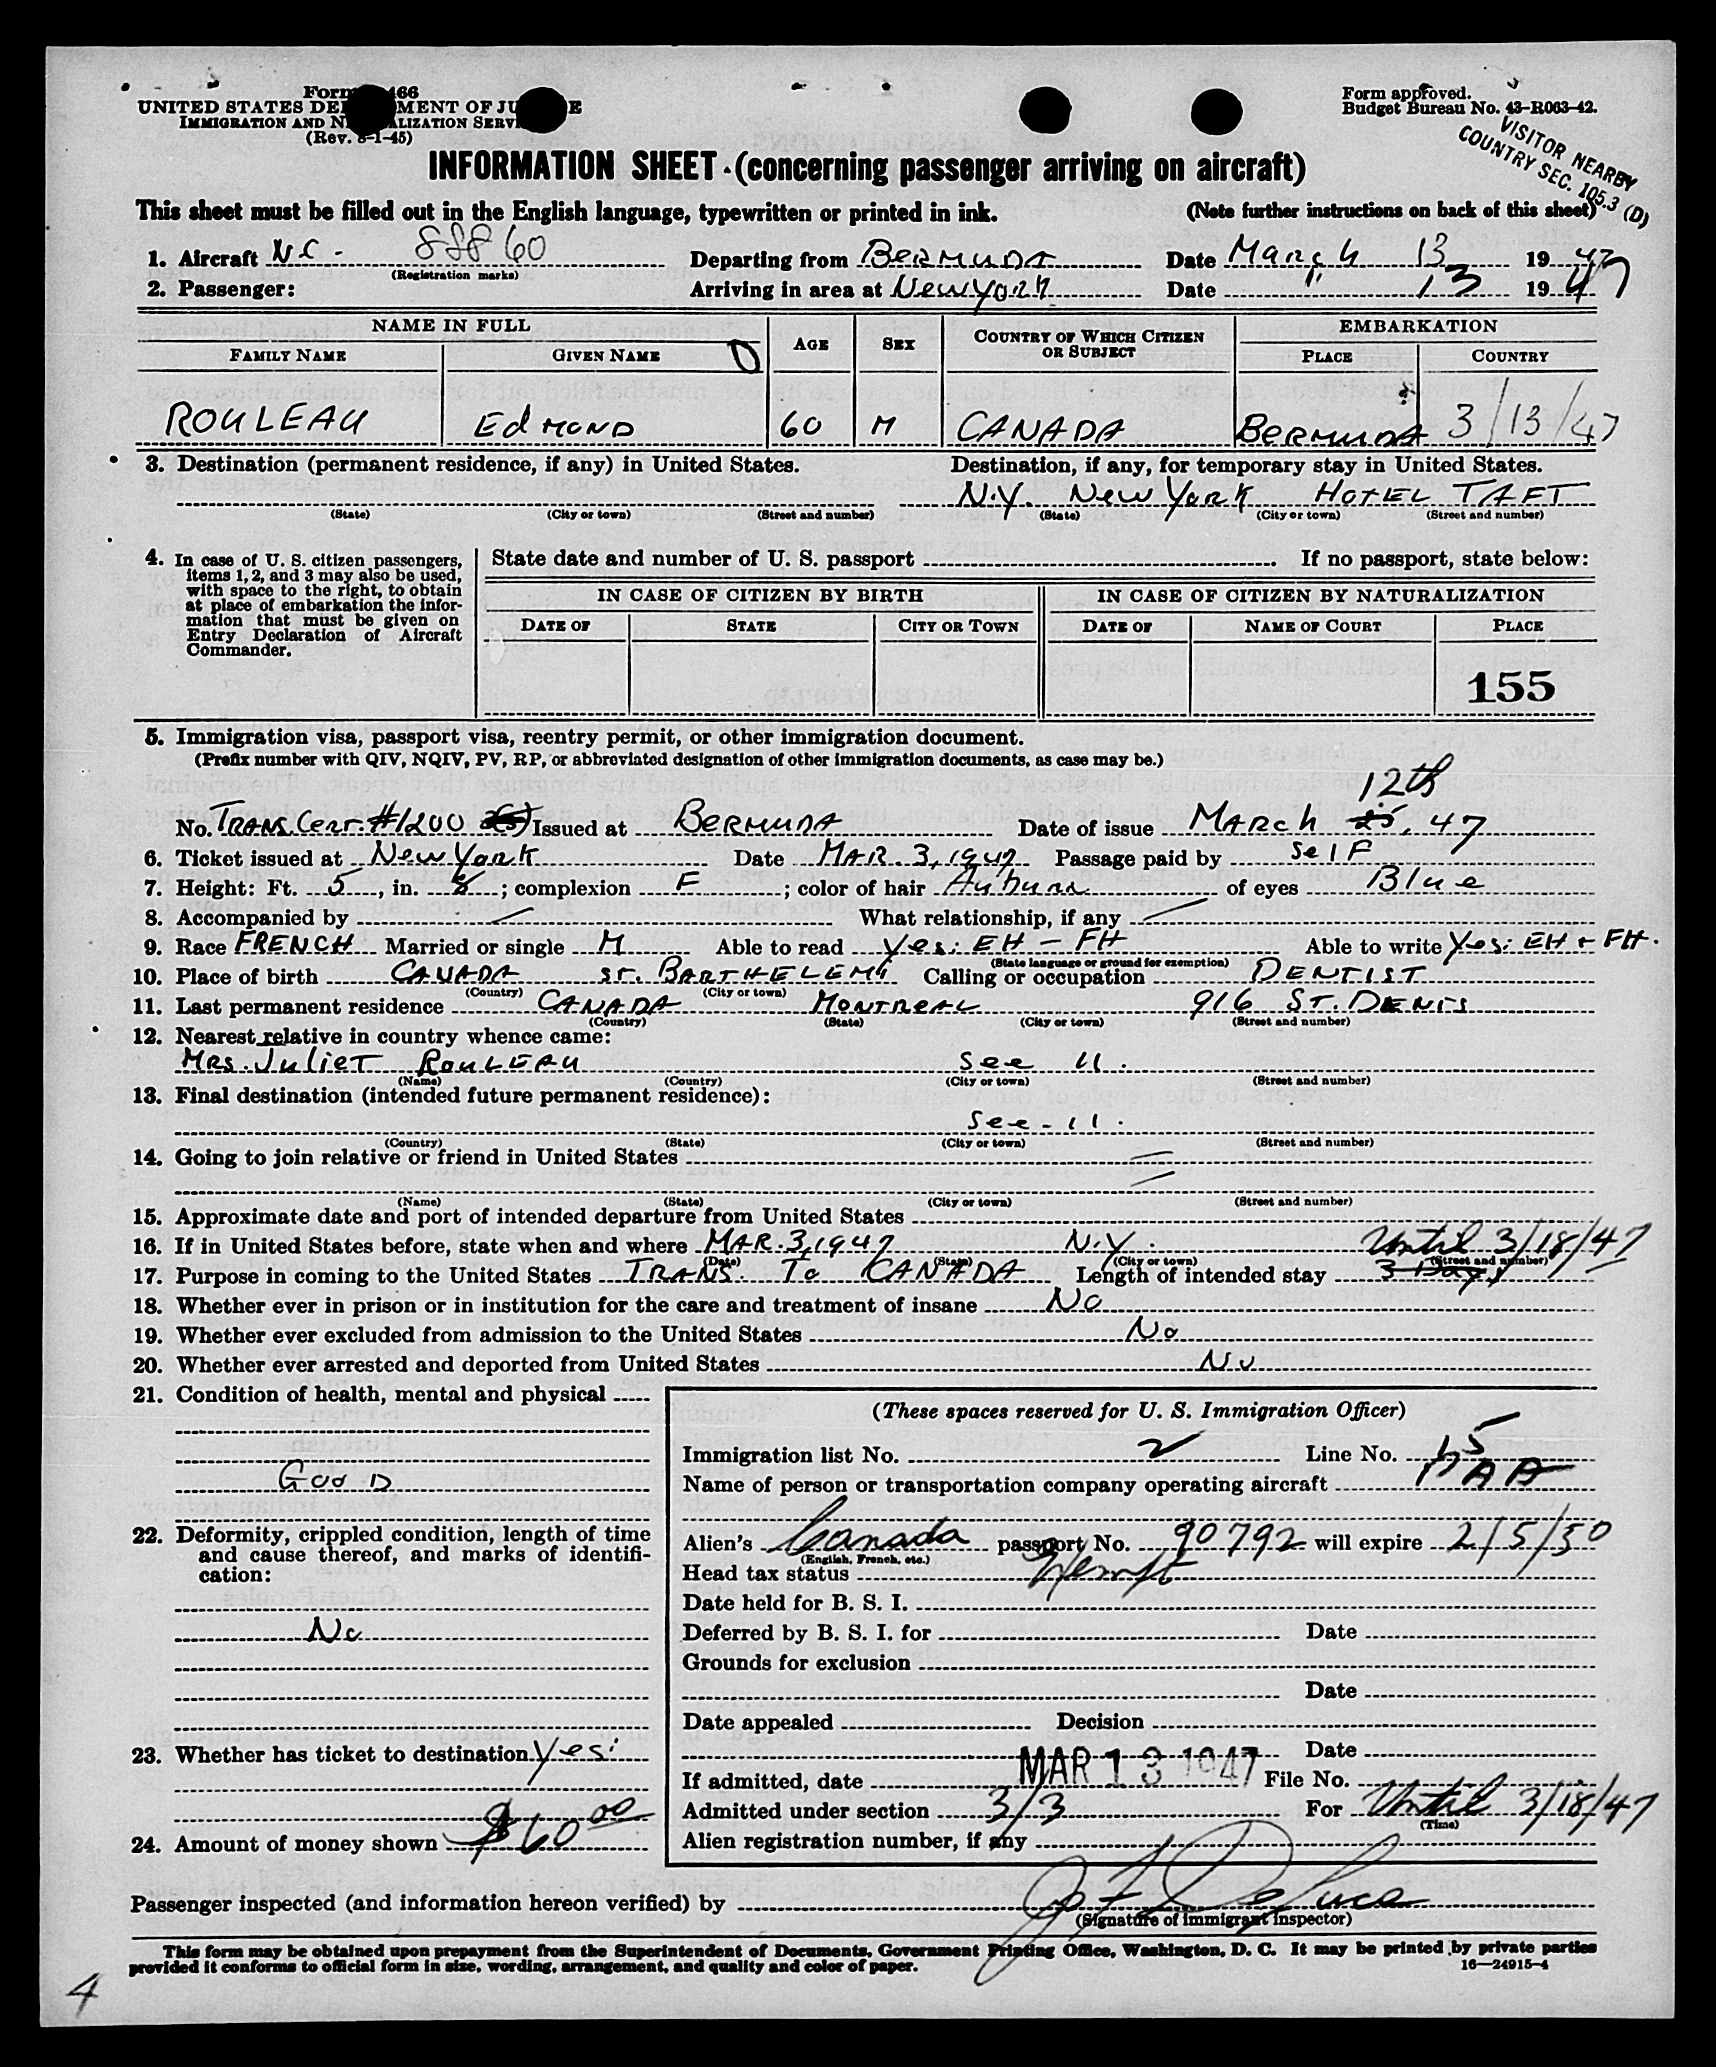 Form 466
UNITED STATES DEPARTMENT OF JUSTICE
IMMIGRATION AND NATURALIZATION SERVICE
(Rev. 8-1-45)
Form approved.
Budget Bureau No. 43-R063-42.
VISITOR NEARBY
COUNTRY SEC. 105.3 (D)
INFORMATION SHEET (concerning passenger arriving on aircraft)
This sheet must be filled out in the English language, typewritten or printed in ink. (Note further instructions on back of this sheet)
1. Aircraft NC - 88860 Departing from BERMUDA Date March 13 1947
(Registration marks)
2. Passenger: Arriving in area at New York Date " 13 1947
NAME IN FULL
FAMILY NAME GIVEN NAME AGE SEX COUNTRY OF WHICH CITIZEN OR SUBJECT EMBARKATION PLACE COUNTRY
ROULEAU EdMOND 60 M CANADA BERMUDA 3/13/47
3. Destination (permanent residence, if any) in United States. Destination, if any, for temporary stay in United States.
N.Y. New York HOTEL TAFT
(State) (City or town) (Street and number) (State) (City or town) (Street and number)
4. In case of U. S. citizen passengers, items 1, 2, and 3 may also be used, with space to the right, to obtain at place of embarkation the information that must be given on Entry Declaration of Aircraft Commander.
State date and number of U. S. passport If no passport, state below:
IN CASE OF CITIZEN BY BIRTH IN CASE OF CITIZEN BY NATURALIZATION
DATE OF STATE CITY OR TOWN DATE OF NAME OF COURT PLACE
155
5. Immigration visa, passport visa, reentry permit, or other immigration document.
(Prefix number with QIV, NQIV, PV, RP, or abbreviated designation of other immigration documents, as case may be.)
12th
No. TRANS. Cert. #1200 Issued at BERMUDA Date of issue MARch 25, 47
6. Ticket issued at New York Date MAR. 3, 1947 Passage paid by Self
7. Height: Ft. 5, in. 8; complexion F; color of hair Auburn of eyes Blue
8. Accompanied by — What relationship, if any —
9. Race FRENCH Married or single M Able to read Yes: EH - FH Able to write Yes: EH + FH.
(State language or ground for exemption)
10. Place of birth CANADA ST. BARTHELEMI Calling or occupation DENTIST
(Country) (City or town)
11. Last permanent residence CANADA MONTREAL 916 ST. DENIS
(Country) (State) (City or town) (Street and number)
12. Nearest relative in country whence came:
MRS. JulieT ROULEAU See 11.
(Name) (Country) (City or town) (Street and number)
13. Final destination (intended future permanent residence):
See - 11.
(Country) (State) (City or town) (Street and number)
14. Going to join relative or friend in United States
(Name) (State) (City or town) (Street and number)
15. Approximate date and port of intended departure from United States
16. If in United States before, state when and where MAR. 3, 1947 N.Y. Until 3/18/47
(Date) (State) (City or town) (Street and number)
17. Purpose in coming to the United States TRANS. To CANADA Length of intended stay 3 Days
18. Whether ever in prison or in institution for the care and treatment of insane No
19. Whether ever excluded from admission to the United States No
20. Whether ever arrested and deported from United States No
21. Condition of health, mental and physical
GooD
22. Deformity, crippled condition, length of time and cause thereof, and marks of identification:
No
23. Whether has ticket to destination Yes:
24. Amount of money shown $60 00
(These spaces reserved for U. S. Immigration Officer)
Immigration list No. 2 Line No. 15
Name of person or transportation company operating aircraft PAA
Alien's Canada passport No. 90792 will expire 2/5/50
(English, French, etc.)
Head tax status Exempt
Date held for B. S. I.
Deferred by B. S. I. for Date
Grounds for exclusion
Date
Date appealed Decision
Date
If admitted, date MAR 13 1947 File No.
Admitted under section 3/3 For Until 3/18/47
(Time)
Alien registration number, if any
Passenger inspected (and information hereon verified) by
(Signature of immigrant inspector)
This form may be obtained upon prepayment from the Superintendent of Documents, Government Printing Office, Washington, D. C. It may be printed by private parties
provided it conforms to official form in size, wording, arrangement, and quality and color of paper. 16—24915-4
4